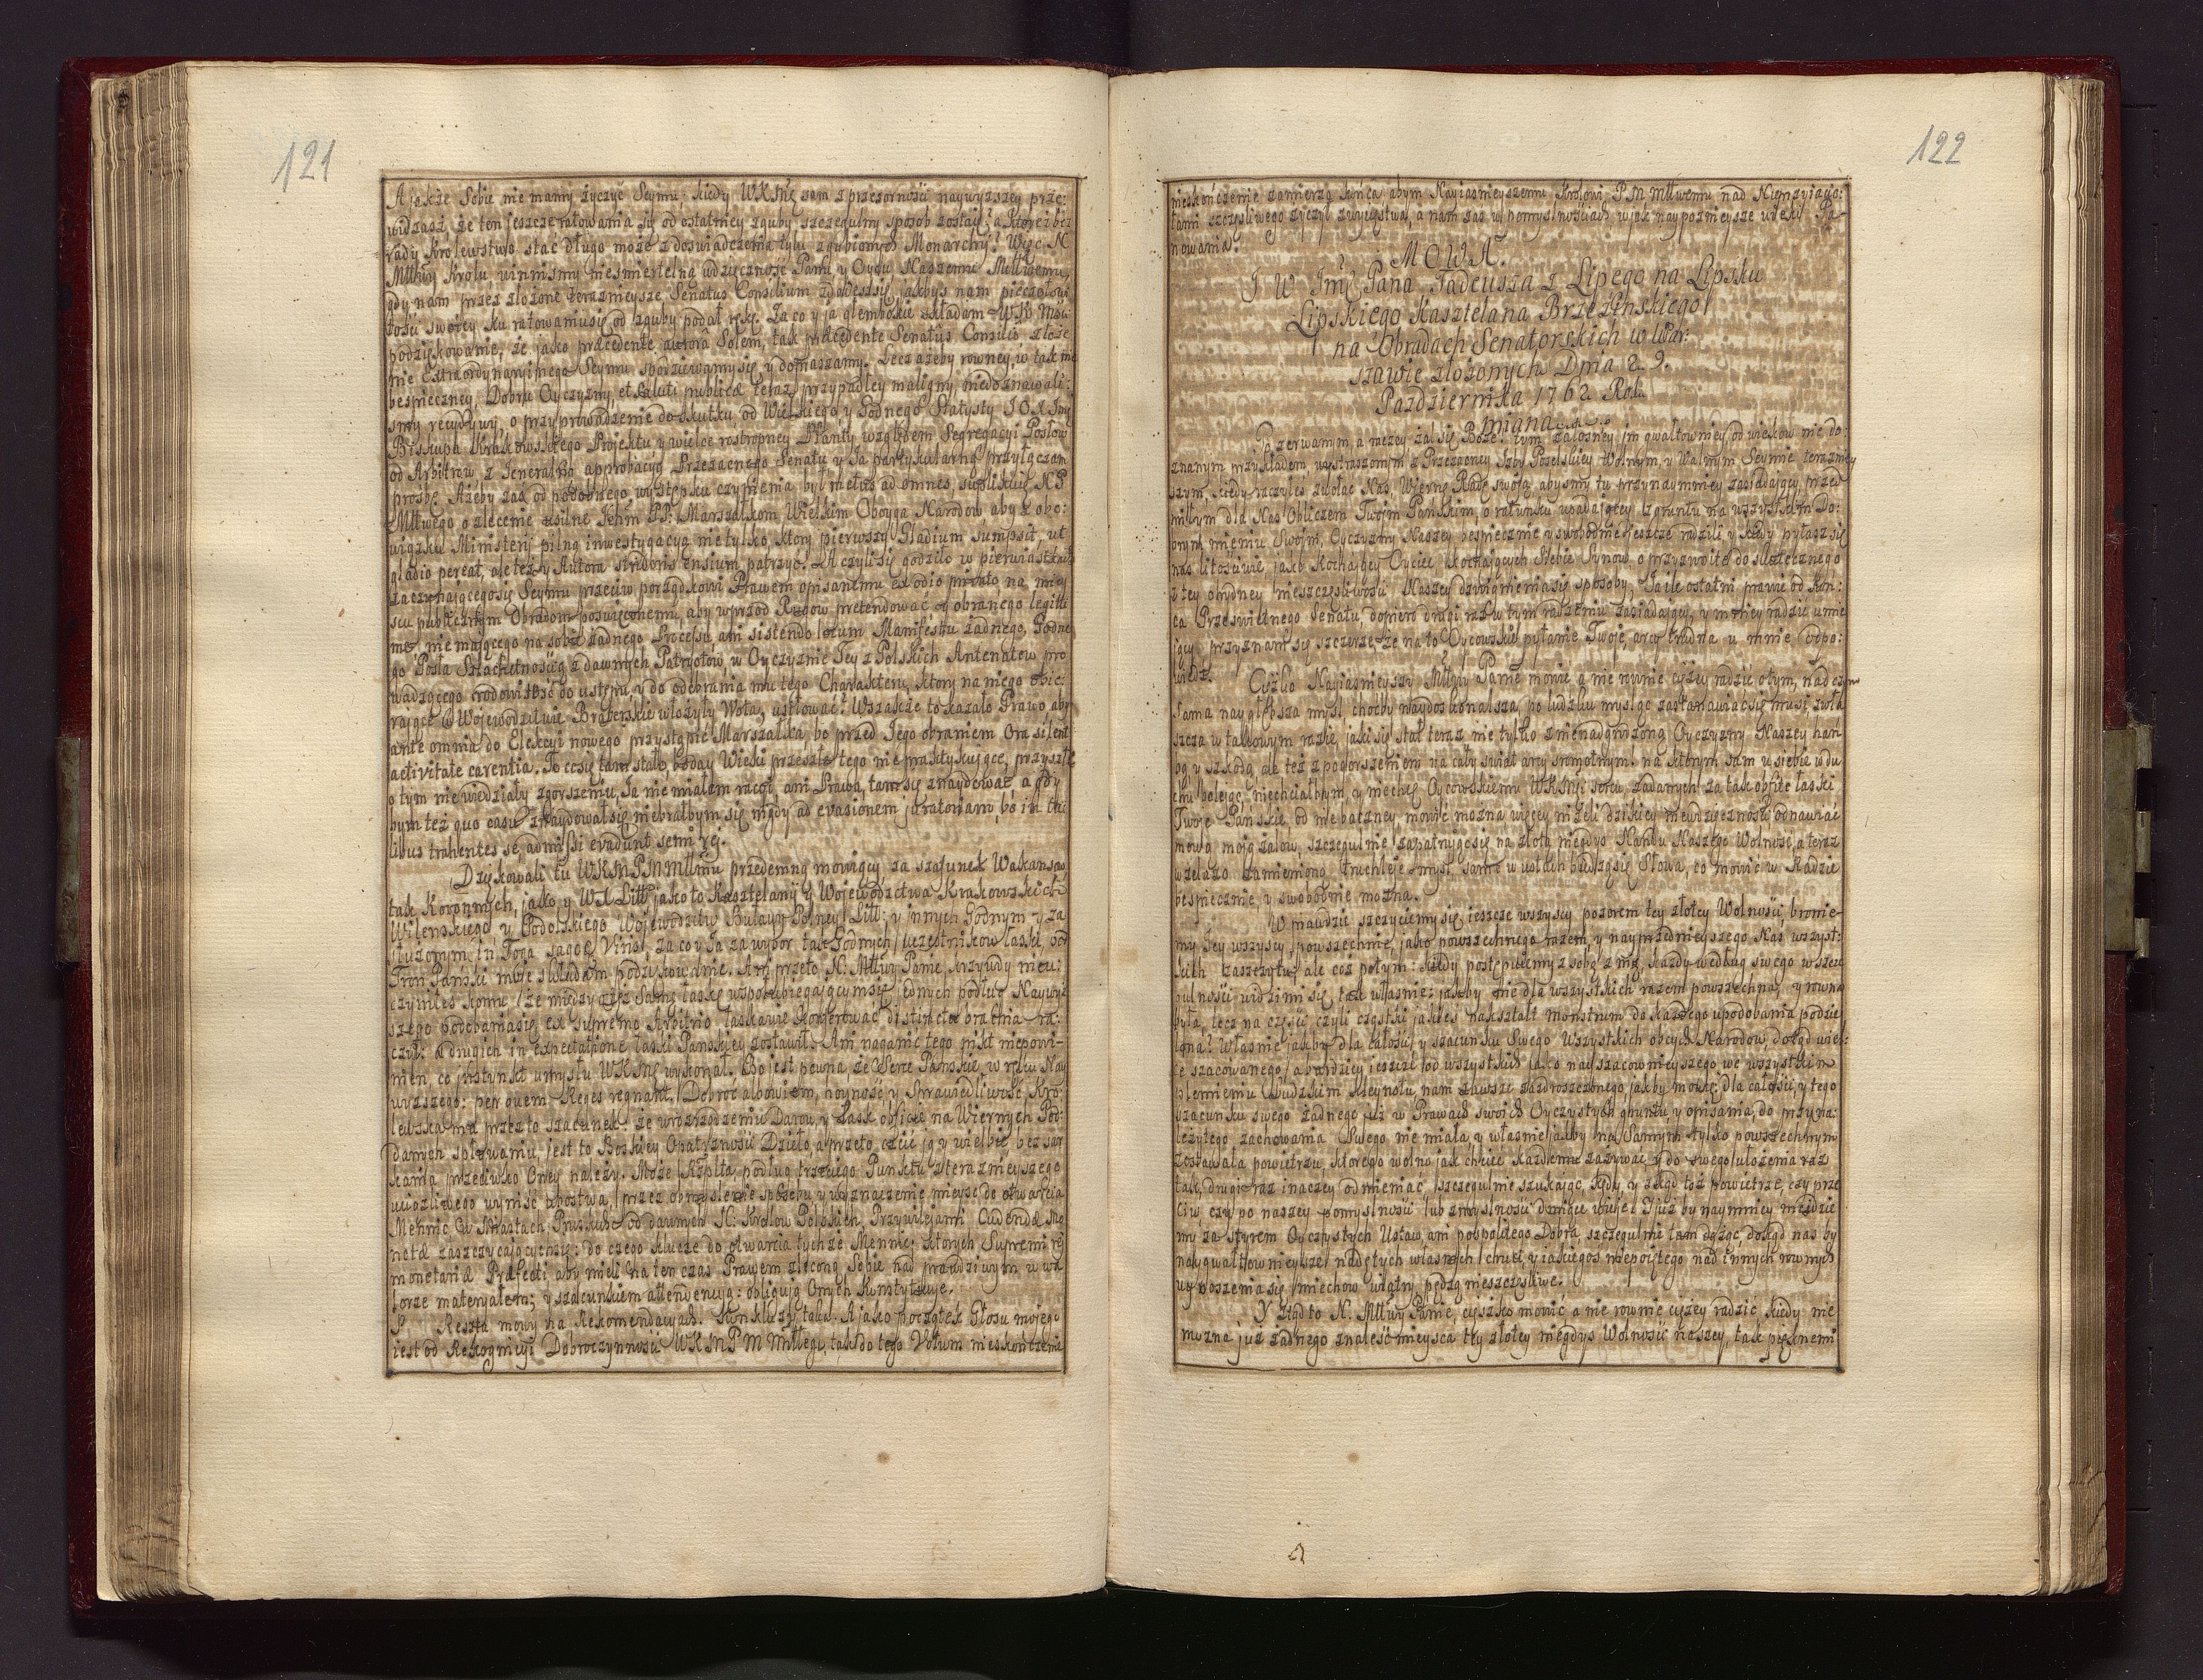 121
A jakże Sobie nie mamy życzyć Seymu, kiedy WKMść sam z przezorności naywyższey prze:
widzasz że ten jeszcze ratowania się od ostatniey zguby szczegulny sposob zostaie? a ktoreż bez
rady Krolewstwo stać długo może z doswiadczenia tylu zgubionych Monarchy? Więc N
Mtłwy Krolu winnismy niesmiertelną wdzięcznosc Panu y Oycu Naszemu Mtłwemu,
gdy nam przez złożone terazнieysze Senatus Consilium zdałeśsię jakbys nam pieczołowi
tości swoiey ku ratowaniu się od zguby podał rękę. Za co y ja głembokie składam WK Mści
podziękowanie, że jako præcedente aurora Solem, tak præcedente Senatus Consilio złoże
nie Extraordynaryinego Seymu spodziewamy się, y domaszamy. Lecz ażeby rowney, w tak nie
bespieczney, Dobru Oyczyzny, et Saluti publicæ teraz przypadłey maligny niedoznawali:
smy recydywy, o przyprowadzenie do skutku, od Wielkiego y Godnego Statysty JOX Jmci
Biskupa Krakowskiego Projektu y wielce rostropney Planty względem Segregacyi Posłow
od Arbitrow z Jeneralną approbacyą Przezacnego Senatu y Ja partykularną przyłączam
prosbę. Ażeby zaś od podobnego występku czynienia był metus ad omnes, suplikuię N P
Mtłwego o zlecenie usilne Ichm PP. Marszałkom Wielkim Oboyga Narodow, aby z obo:
wiązku Ministerij pilną inwestygacyą nietylko, ktory pierwszy Gladium sumpsit, ut
gladio pereat, ale też y Autora stridoris ensium patrzyć. A czyli się godziło w pierwiastkach
zaczynającegosię Seymu przeciw porządkowi Prawem opisanemu ex odio privato, na miey
scu publicznym Obradom poswięconemu, aby wprzod Rugow pretendować y obranego legitti
me, niemającego na sobie żadnego Processu, ani sistendo locum Manifestu żadnego, Godne
go Posła Szlachetnością z dawnych Patryotow, w Oyczyznie Tey z Polskich Antenatow pro
wadzącego rodowitość do ustępu, y do odebrania mu tego Charakteru, ktory na niego obie:
rające Wojewodztwie włożyły Wota, usiłować? Wszakże to kazało Prawo aby
ante omnia do Elekcyi nowego przystąpić Marszałka, bo przed Jego obraniem Ora silent
activitate carentia. To co się tam stało, boday Wieki przeszłe tego nie praktykujące, przyszłe
o tym nie wiedziały zgorszeniu. Ja nie miałem racyi, ani Prawa, tam się znaydować, a gdy
bym też quo casu znaydował się, niebrałbym się nigdy ad evasionem juratoriam, bo in tali
libus trahentes se, admissi evadunt semi rej.
Dziękowali tu WKMPNMtłmu przedemną mowiący za szafunek Wakansow
tak Koronnych, jako y WXLitt: jako to Kasztelanij y Wojewodztwa Krakowskich
Wilenskiego y Podolskiego Wojewodztw Buławy Polney Litt: y innych Godnym y za
służonym in Toga sagoq Viris, za co y Ja za wybor tak Godnych uczęstnikow łaski, pod
Tron Panski moje składam podziękowanie. Ani przeto N: Mtłwy Panie krzywdy nieu:
czyniłeś komu, że między też Samę łaskę wspołubiegającymsię jednych podług Naywyż
szego podobaniasię, ex supremo Arbitrio łaskawie konferować distincta bracchia ra:
czył: a drugich in expectatione łaski Panskiey zostawił. Ani naganić tego nikt niepowi-
nien, co instynkt umysłu WKMci wykonał. Bo jest pewna, że Serce Panskie w ręku Nay
wyższego: per quem Reges regnant. Dobroć albowiem, hoyność y Sprawiedliwość Kro-
lewska ma przez to szacunek: że w rozrządzeniu Darow y Łask obficie na Wiernych Pod:
danych spływaniu, jest to Boskiey Opatrzności Dzieło, a przeto czcić ją y wielbić bez sar
kania przeciwko Oney należy. Może Rzplta podług trzeciego Punktu z terazнieyszego
uciążliwego wyniść ubostwa, przez obmyslenie sposobu y wyznaczenie mieysc do otwarcia
Mennic w Miastach Pruskich od dawnych N: Krolow Polskich, Przywilejami Cudendæ Mo
netæ zaszczycającychsię: do czego klucze do otwarcia tychże Mennic, ktorych Supremi rei
monetariæ Præfecti aby mieli na ten czas Prawem zleconą Sobie nad prawdziwym w wa
lorze materyałem; y szacunkiem attendencyą: obligują Onych Konstytucye.
Reszta mowy na Rekomendacyach. Konkluzya taka. A jako początek Głosu mojego
jest od Rekognicyi Dobroczynności WKMPM Mtłłego, tak do tego Votum nieskończenie
122
nieskończenie zamierza konca, abym Nayiasnieyszemu Krolowi P M Mtłwemu nad Nieprzyjacio:
łami szczęśliwego życzył zwycięstwa, a nam zaś w pomyslnościach w jak naypoznieysze wieki Pa-
nowania.
MOWA.
J W Jmći Pana Tadeusza z Lipego na Lipsku
Lipskiego Kasztelana Brzezinskiego
na Obradach Senatorskich w War:
szawie złożonych Dnia 29.
Pazdziernika 1762 Roku
miana.
Po zerwanym a raczey żal się Boże! tym żałosney im gwałtowniey od wiekow nie do:
znanym przykładem, wystraszonym z Przezacney Izby Poselskiey Wolnym, y Walnym Seymie teraznіey
szym, kiedy raczyłeś zwołać Nas, Wierną Radę swoją, abysmy tu przynaymniey zasiadający przed
miłym dla Nas Obliczem Twojm Pańskim, o ratunku upadaiącey z gruntu na wszystkim Do:
brym mieniu Swojm, Oyczyzny Naszey bespiecznie y swobodnie jeszcze radzili, y kiedy pytasz się
nas litościwie, jako Kochający Oyciec kochających Siebie Synow, o przyzwoite do skutecznego
z tey ohydney nieszczęśliwości Naszey dzwignienia się sposoby, Ja ile ostatni prawie od Kon:
ca Prześwietnego Senatu, dopiero drugi raz w tym radzeniu zasiadający, y mniey radzić umie
jący, przyznam się szczerze, że na to Oycowskie pytanie Twoje, arcy trudna u mnie odpo:
wiedz.
Ciężko Nayiasnieyszy Mtłwy Panie mowić a nie rownie ciężey radzić o tym, nad czym
Sama naygłębsza mysl choćby naydoskonalsza, po ludzku mysląc zastanawiać się musi, zwła
szcza w takowym razie, jaki się stał teraz nie tylko z nienadgrodzoną Oyczyzny Naszey hań
bą y szkodą, ale też z pogorszeniem na cały swiat arcy sromotnym: na ktorym sam w siebie w du
chu bolejąc, niechciałbym, y niechcę Oycowskiemu WKMci sercu, zadanych za tak obfite łaski
Twoje Panskie, od niebaczney, mowić można więcey niżeli dzikiey niewdzięczności, odnawiać
mową moją żalow, szczegulnie zapatrując się na złotą niegdyś Narodu Naszego Wolność, a teraz
w żelazo zamienioną. Truchleje zmysł, same w ustach będąsię Słowa, co mowić w Radzie
bespiecznie, y swobodnie można.
Wprawdzie szczyciemy się jeszcze wszyscy pozorem tey złotey Wolności, bronie-
my Jey wszyscy powszechnie, jako powszechnego razem, y nayprzednieyszego Nas wszyst:
kich zaszczytu, ale coż potym: kiedy postępuiemy z sobą z nią, każdy według swego w szcze
gulności widzimi się, tak własnie, jakby nie dla wszystkich razem powszechna, y rowna
była, lecz na części czyli cząstki jakieś nakształt monstrum do każdego upodobania podzie
lona? Własnie jakby dla całości y szacunku Swego Wszystkich obcych Narodow, dotąd wiel:
ce szacowanego, a bardziey jeszcze od wszystkich jako nayszacownieyszego we wszystkim
plemieniu Ludzkim kleynotu, nam zawsze zazdroszczonego, jakby mowię: dla całości, y tego
szacunku swego żadnego już w Prawach swoich Oyczystych gruntu y opisania, do przyna:
leżytego zachowania Swego nie miała, y własnie jakby na Samym tylko powszechnym
zostawała powietrzu, ktorego wolno jak chcieć każdemu zażywać, y do swego ułożenia raz
tak, drugi raz inaczey odmieniać, szczegulnie szukając, kędy, y zkąd toż powietrze, czy prze
ciw, czy po naszey pomyslności lub zmyslności dmące wieje. I już by naymniey nieidzie
my za styrem Oyczystych Ustaw, ani pospolitego Dobra, szczegulnie tam dążąc, dokąd nas by
naygwałtownieysze nadętych własnych chuci, y jakiegoś niepojętego nad innych rownych
wynoszenia się, niechow wiatry pędzą nieszczęśliwe.
Y ztąd to N. Mtłwy Panie, ciężko mowić, a nie rownie ciężey radzić, kiedy nie
można już żadnego znaleść mieysca tey złotey niegdyś Wolności naszey, tak pięknemi